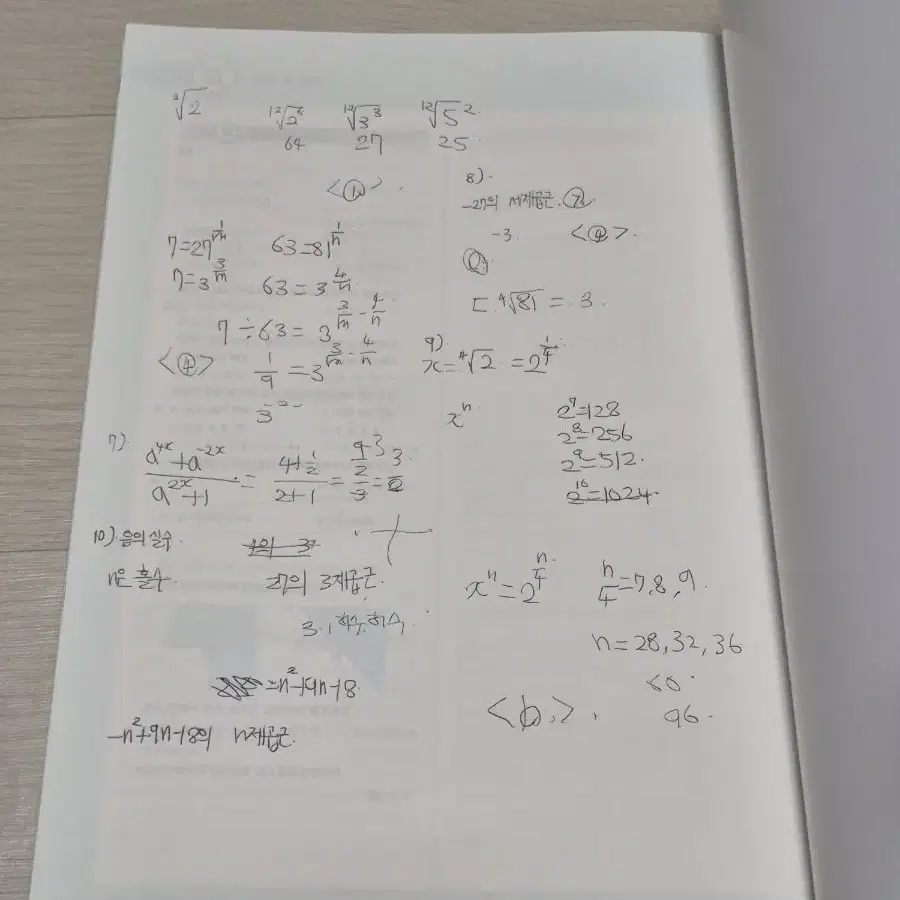 ³√2 ¹²√2⁶ ¹²√3³ ¹²√5²
64 27 25
<①>
7=27^(1/m) 63=81^(1/n)
7=3^(3/m) 63=3^(4/n)
7÷63=3^(3/m-4/n)
<④> 1/9=3^(3/m-4/n)
3^-2
7)
(a^4x+a^-2x)/(a^2x+1)=(4+1/2)/(2+1)=(9/2)/3=3/2
10). 음의 실수
n은 홀수. 27의 3제곱근.
3, 허수, 허수,
=n²+9n-18
-n²+9n-18의 n제곱근
8).
-27의 세제곱근.
-3 <④>.
[⁴√81=3.
9)
x=⁴√2=2^(1/4)
xⁿ 2⁷=128
2⁸=256
2⁹=512.
2^10=1024.
xⁿ=2^(n/4) n/4=7,8,9.
n=28,32,36
60
96.